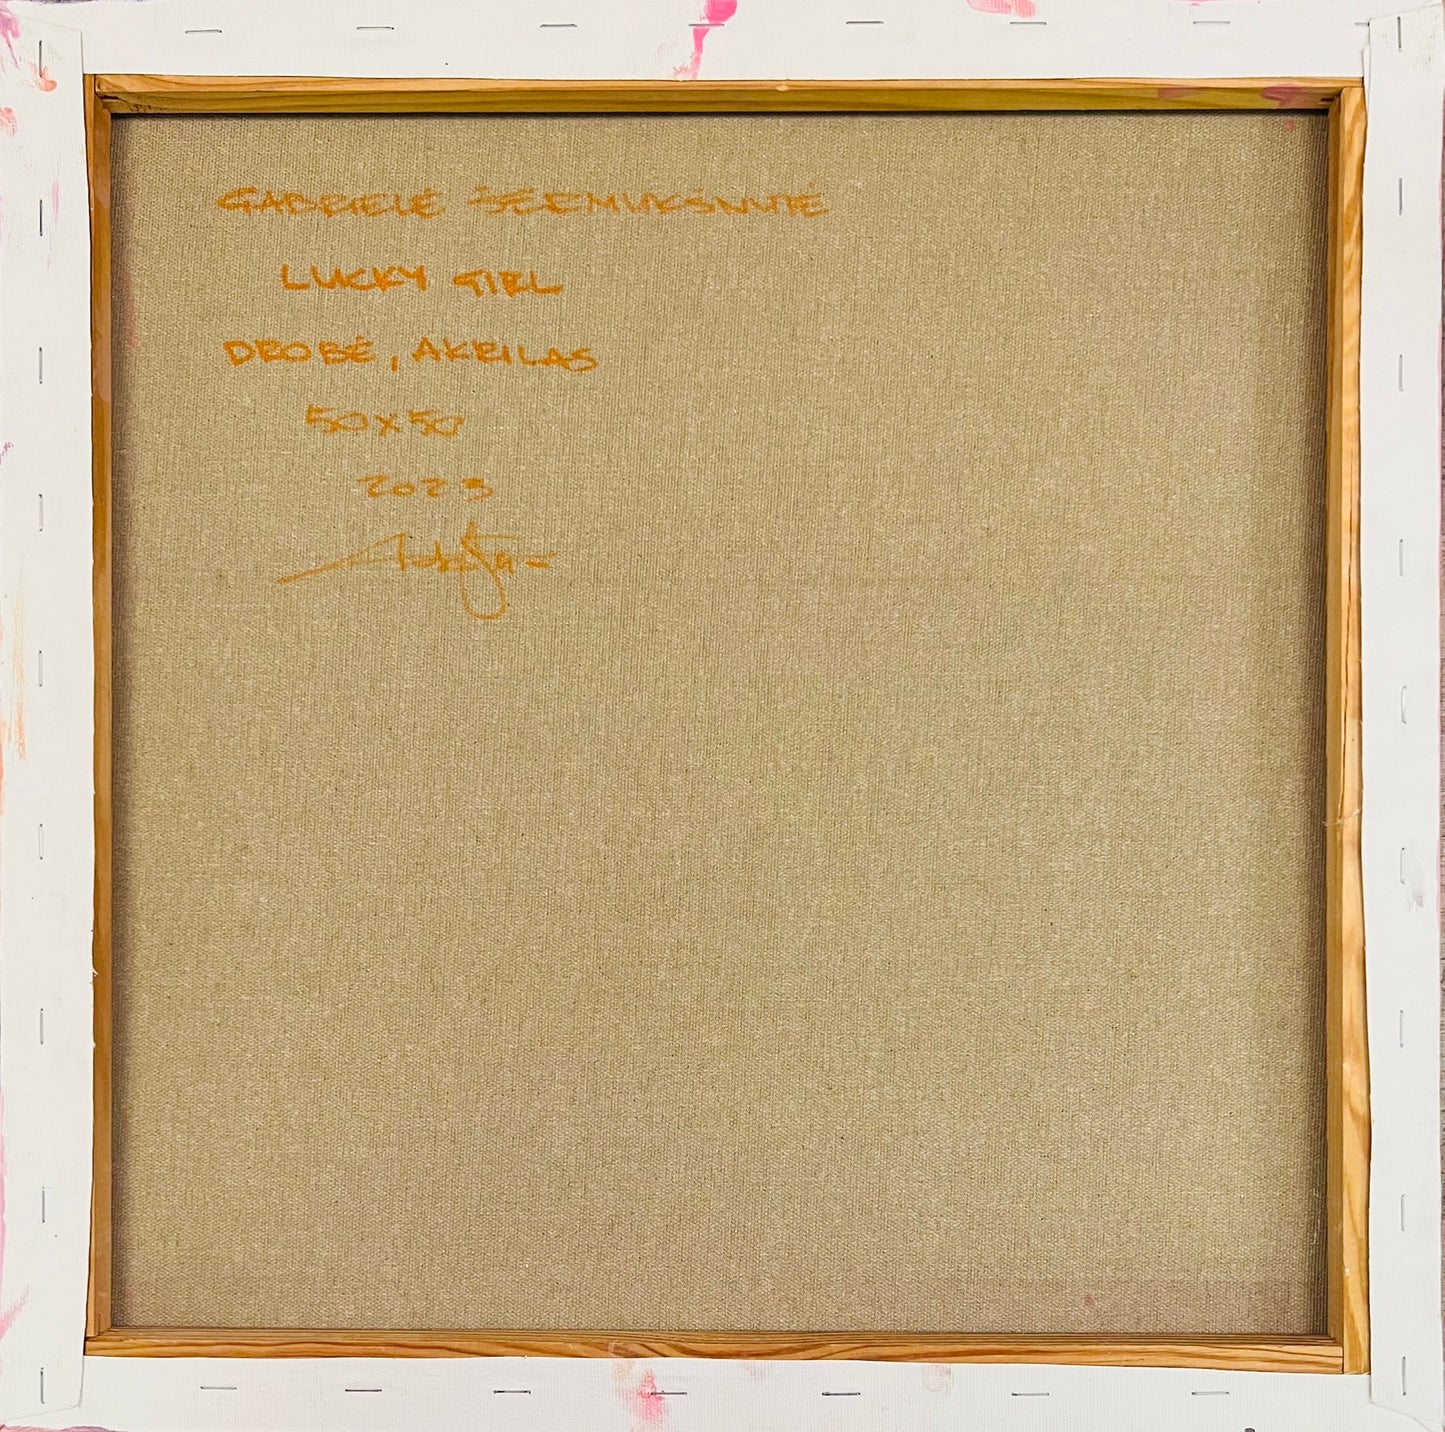 GABRIELĖ ŠERMUKŠNYTĖ
LUCKY GIRL
DROBĖ, AKRILAS
50x50
2023